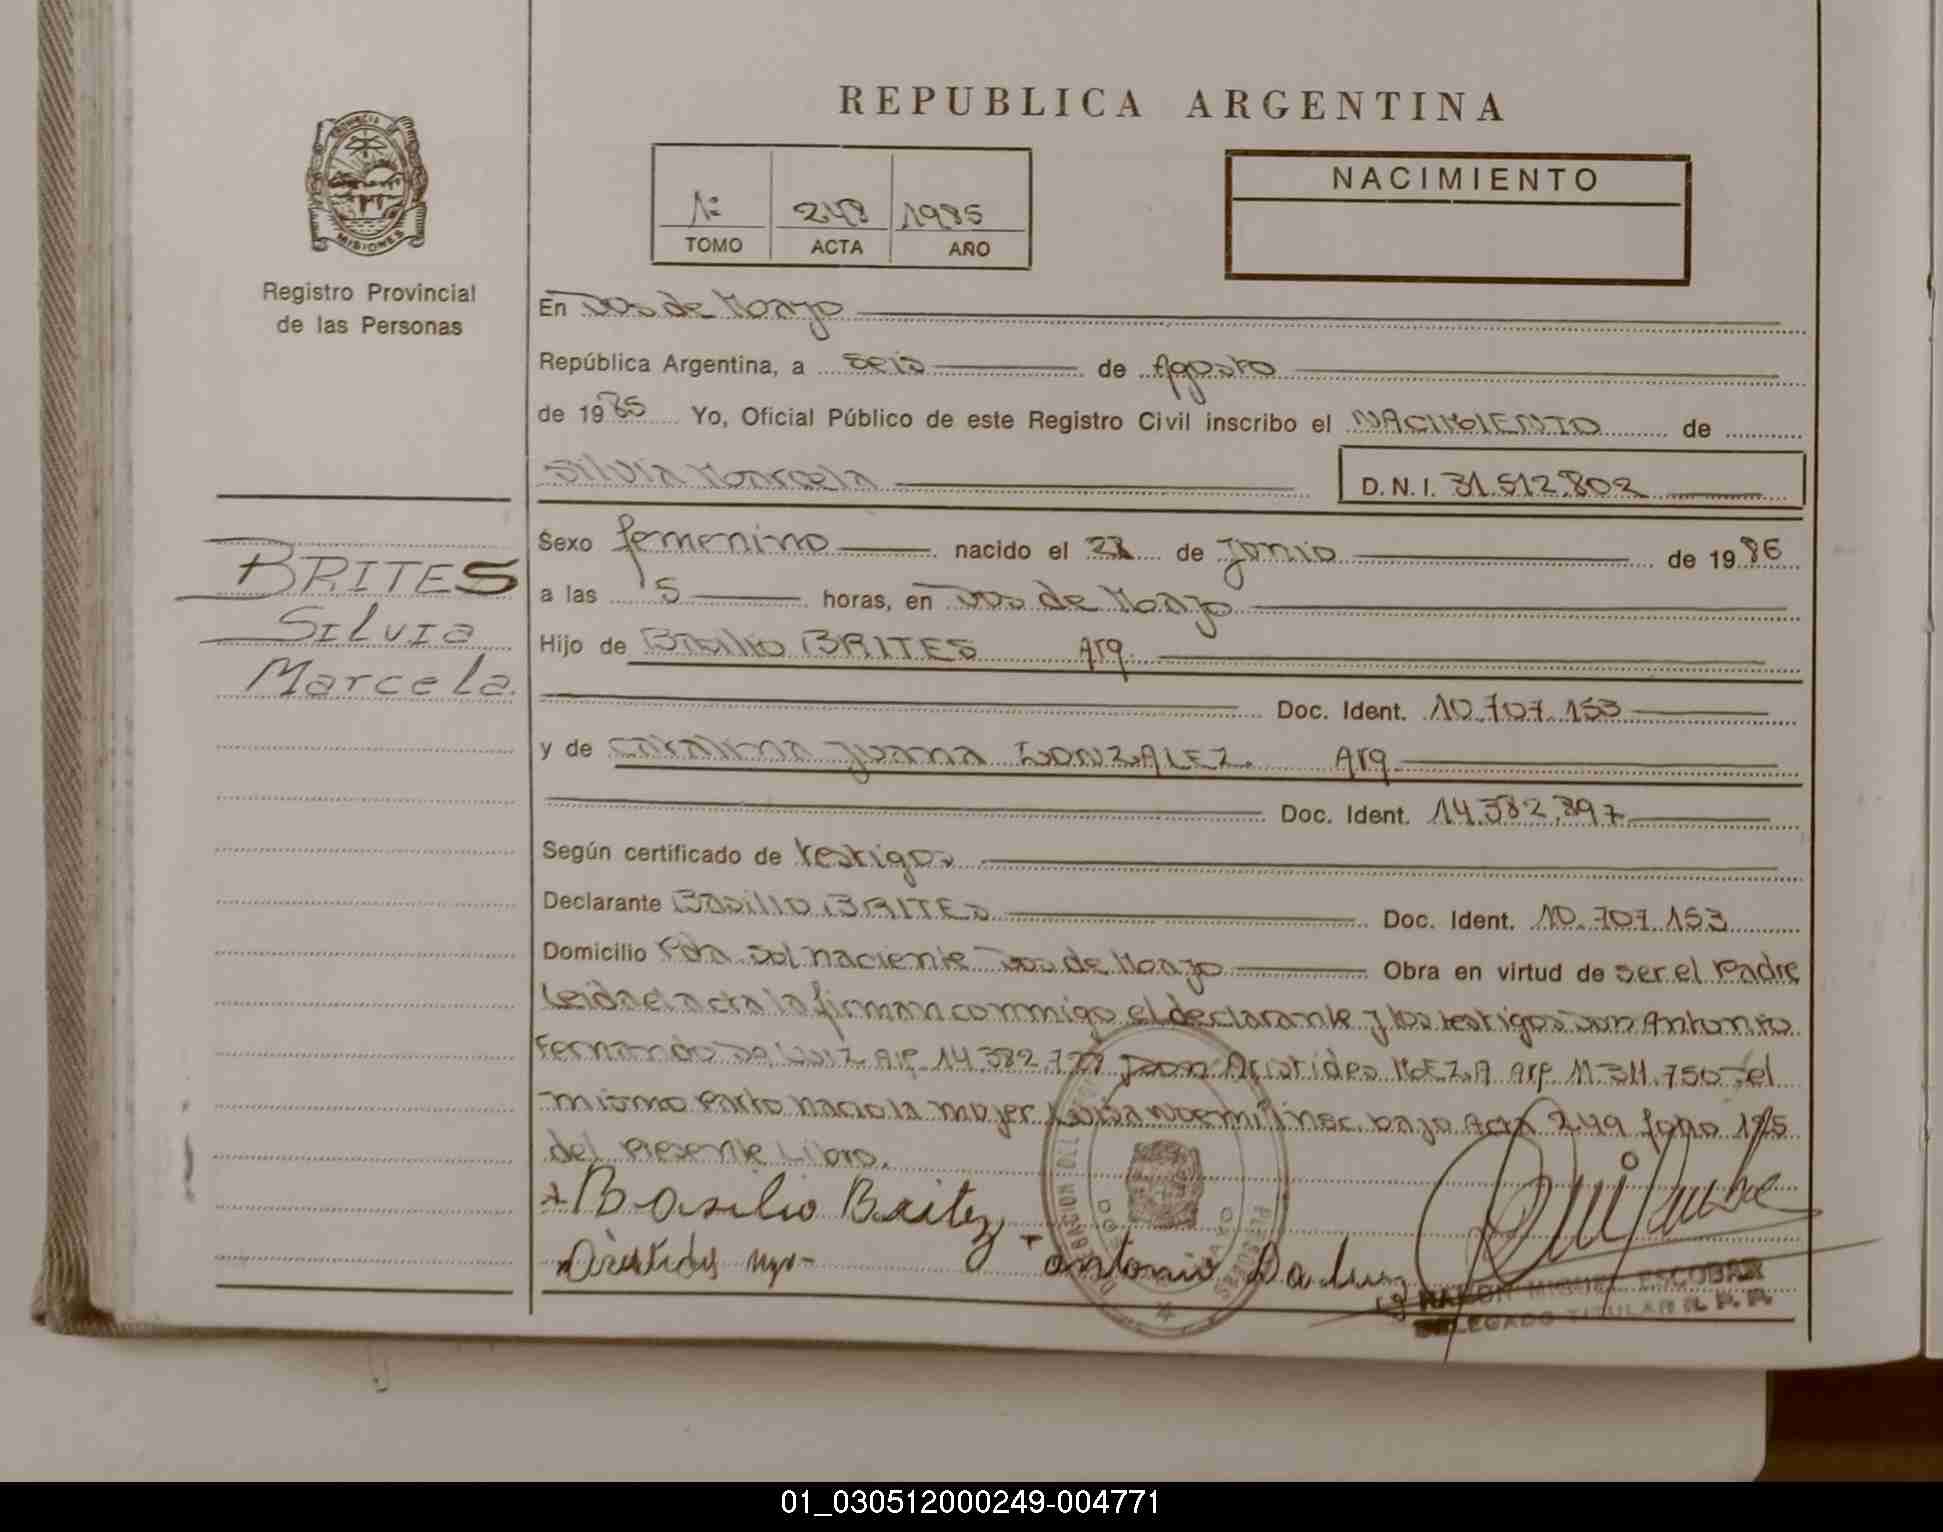 REPUBLICA ARGENTINA
PROVINCIA DE
MISIONES
Registro Provincial
de las Personas
1º 248 1985
TOMO ACTA AÑO
NACIMIENTO
En Dos de Mayo
República Argentina, a seis de Agosto
de 1985 Yo, Oficial Público de este Registro Civil inscribo el NACIMIENTO de
Silvia Marcela
D.N.I. 31.512.802
BRITES
Silvia
Marcela.
Sexo femenino nacido el de Junio de 19
a las 5 horas, en Dos de Mayo
Hijo de Basilio BRITES Arg.
Doc. Ident. 10.707.153
y de Catalina Juana GONZALEZ. Arg.
Doc. Ident. 14.382.897
Según certificado de testigos
Declarante Basilio BRITES Doc. Ident. 10.707.153
Domicilio Pda. Sol naciente Dos de Mayo Obra en virtud de ser el Padre
Leida el acta la firman conmigo el declarante y los testigos Don Antonio
Fernando Da Luz Don Aristides
mismo Parto nacio la mujer Noemi insc. bajo Acta 249 folio
del Presente Libro.
Basilio Britez
Aristides
Antonio Da Luz
RAMON MIGUEL ESCOBAR
DELEGADO TITULAR R. P. P.
01_030512000249-004771